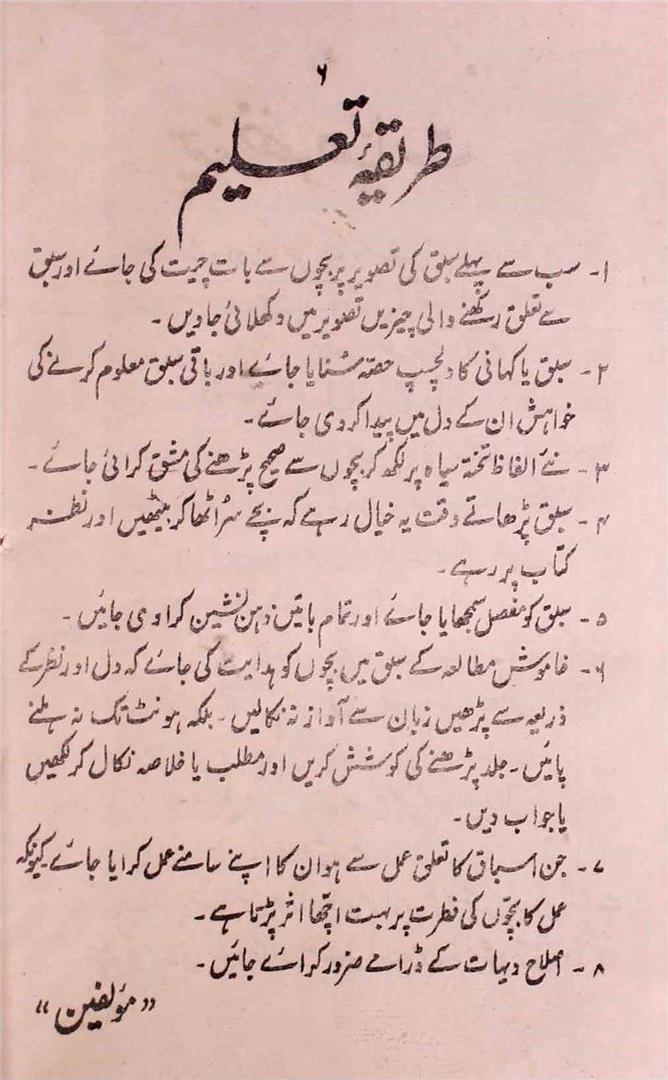 ۶
طریقۂ تعلیم
۱۔ سب سے پہلے سبق کی تصویر پر بچوں سے بات چیت کی جائے اور سبق
سے تعلق رکھنے والی چیزیں تصویر میں دکھلائی جاویں۔
۲۔ سبق یا کہانی کا دلچسپ حصّہ سُنایا جائے اور باقی سبق معلوم کرنے کی
خواہش ان کے دل میں پیدا کر دی جائے۔
۳۔ نئے الفاظ تختۂ سیاہ پر لکھ کر بچوں سے صحیح پڑھنے کی مشق کرائی جائے۔
۴۔ سبق پڑھاتے وقت یہ خیال رہے کہ بچے سر اُٹھا کر بیٹھیں اور نظر
کتاب پر رہے۔
۵۔ سبق کو مفصل سمجھایا جائے اور تمام باتیں ذہن نشین کرا دی جائیں۔
۶۔ خاموش مطالعہ کے سبق میں بچوں کو ہدایت کی جائے کہ دل اور نظر کے
ذریعہ سے پڑھیں زبان سے آواز نہ نکالیں۔ بلکہ ہونٹ تک نہ ہلنے
پائیں۔ جلد پڑھنے کی کوشش کریں اور مطلب یا خلاصہ نکال کر لکھیں
یا جواب دیں۔
۷۔ جن اسباق کا تعلق عمل سے ہو ان کا اپنے سامنے عمل کرایا جائے کیونکہ
عمل کا بچّوں کی فطرت پر بہت اچّھا اثر پڑتا ہے۔
۸۔ اصلاح دیہات کے ڈرامے ضرور کرائے جائیں۔
"مؤلفین"